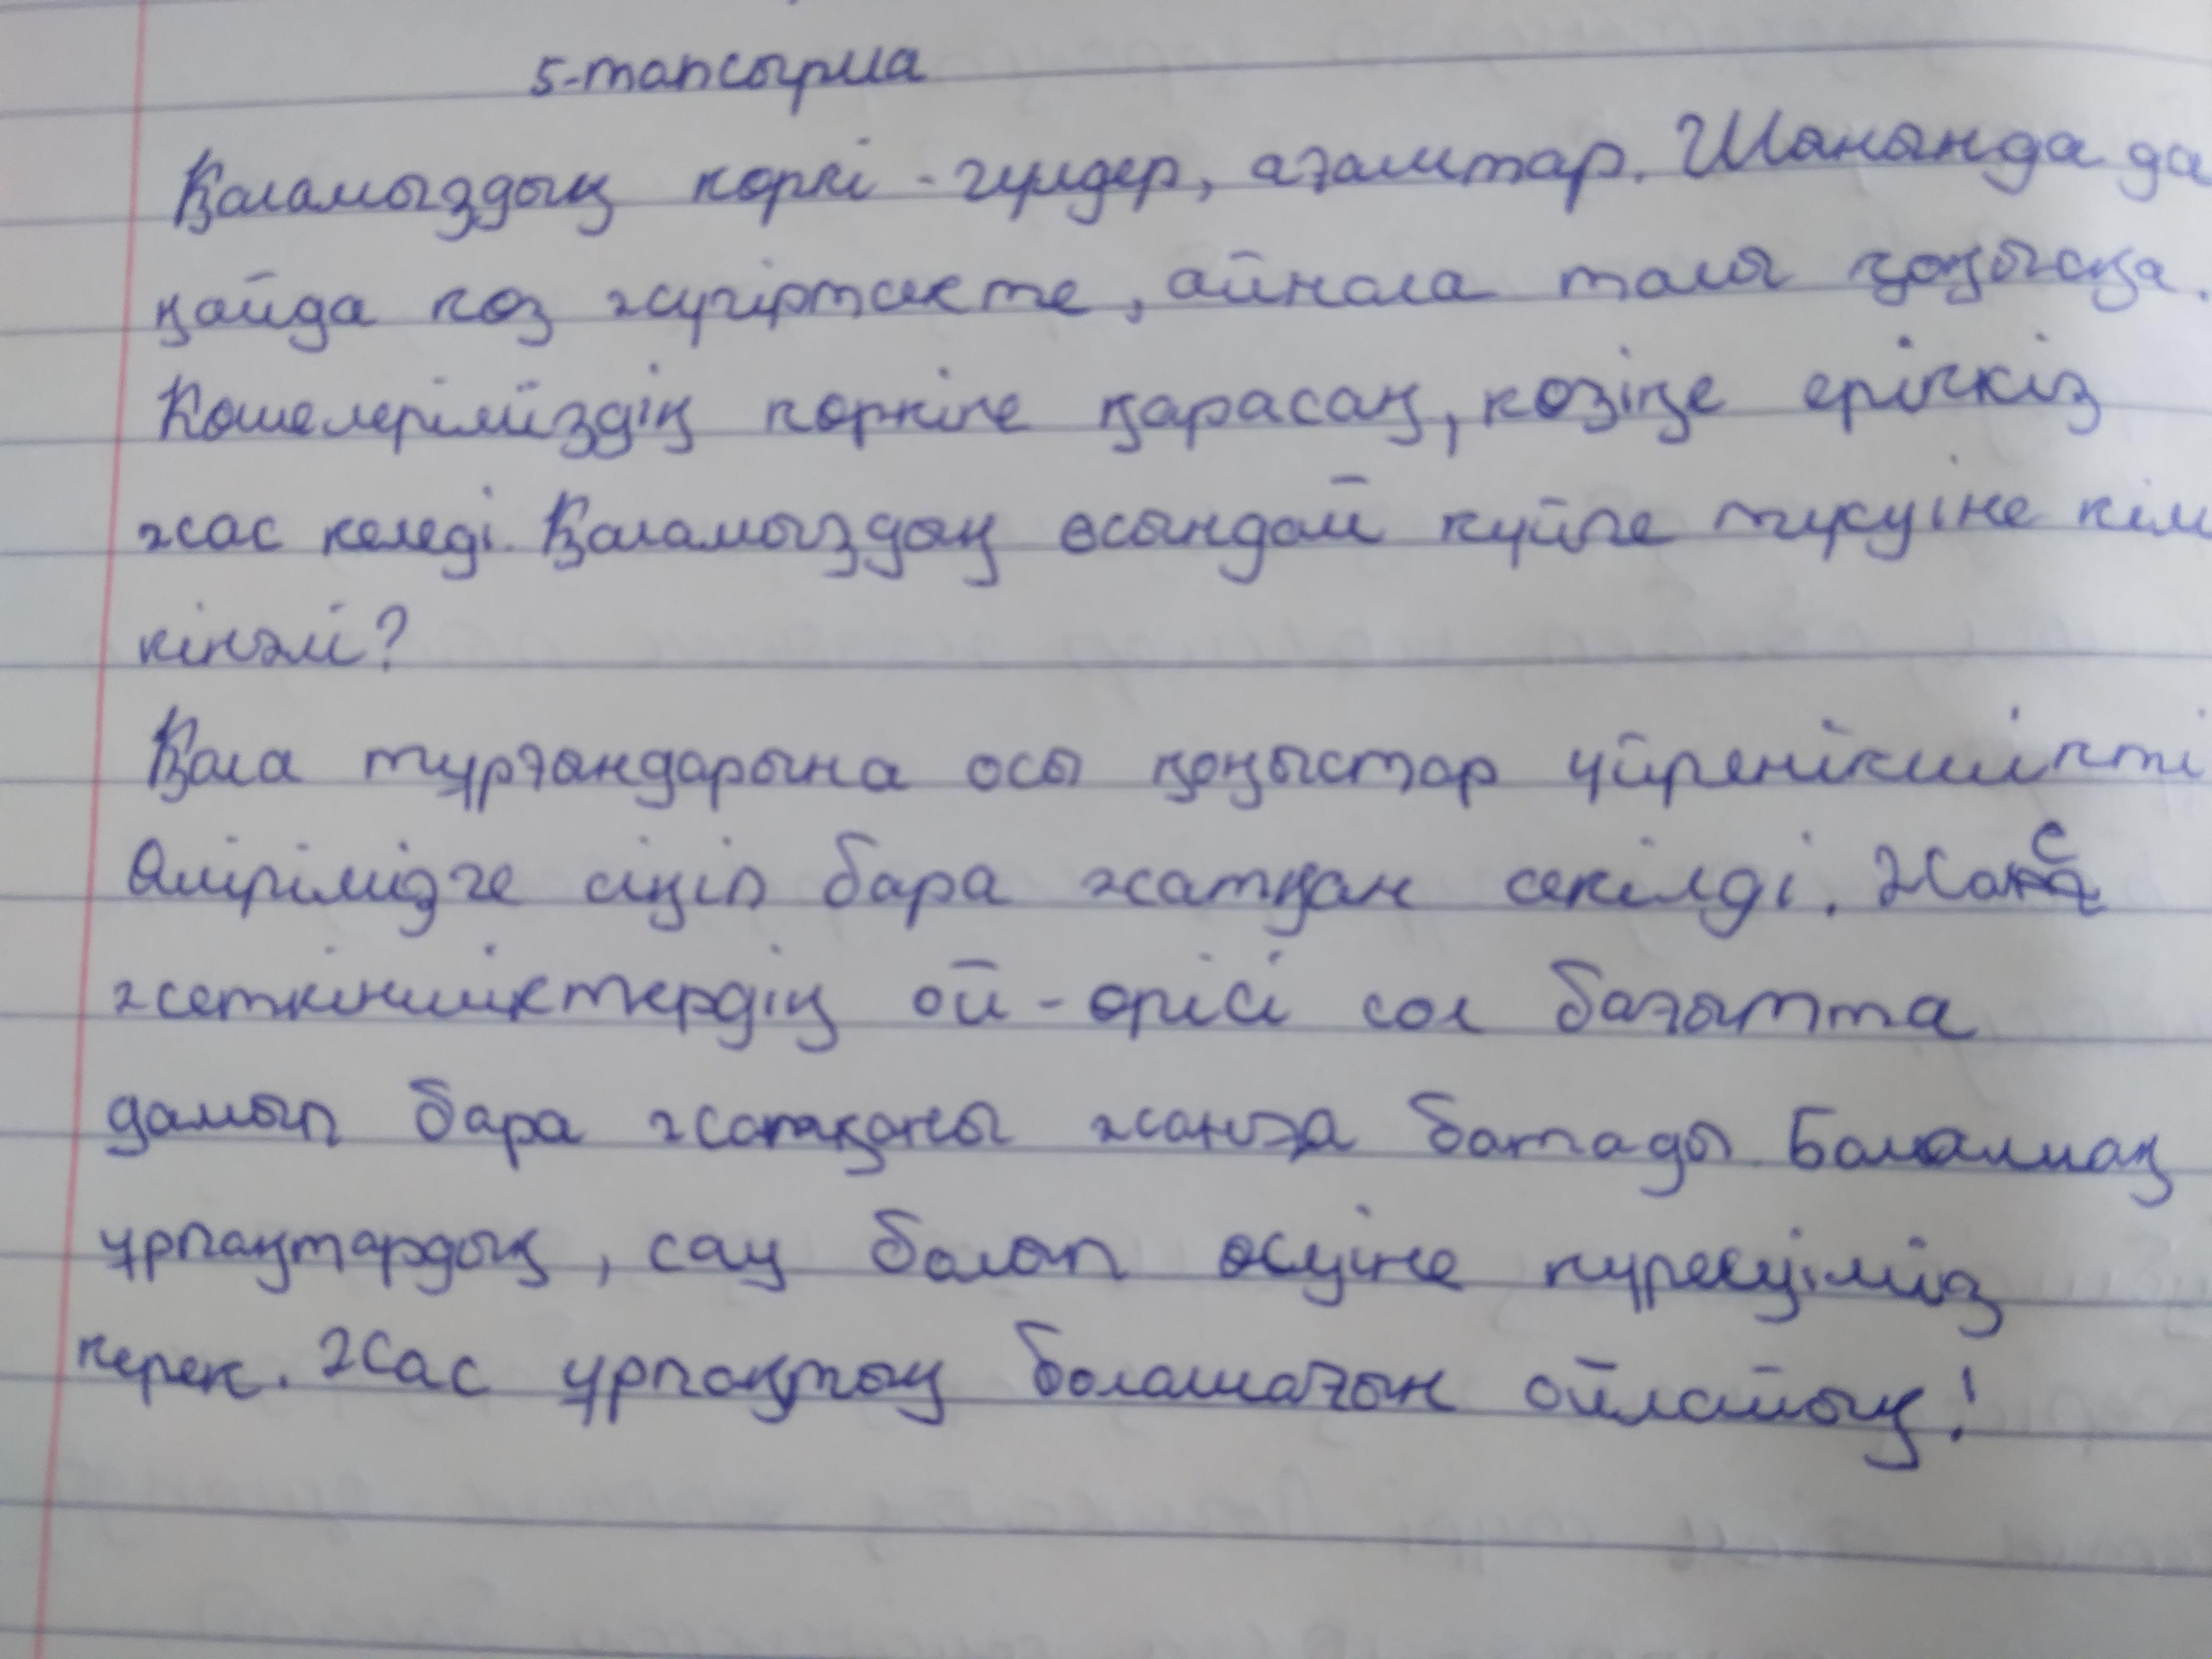 5-тапсырма
Қаламыздың көркі - гүлдер, ағаштар. Шынында да
қайда көз жүгіртсекте, айнала толы қоқысқа.
Көшелеріміздің көркіне қарасаң, көзіңе еріксіз
жас келеді. Қаламыздың осындай күйге түсуіне кім
кінәлі?
Қала тұрғындарына осы қоқыстар үйреншікті
Өмірімізге сіңіп бара жатқан секілді. Жас
жеткіншіктердің ой-өрісі сол бағытта
дамып бара жатқаны жанға батады. Болашақ
ұрпақтардың, сау болып өсуіне күресуіміз
керек. Жас ұрпақтың болашағын ойлайық!